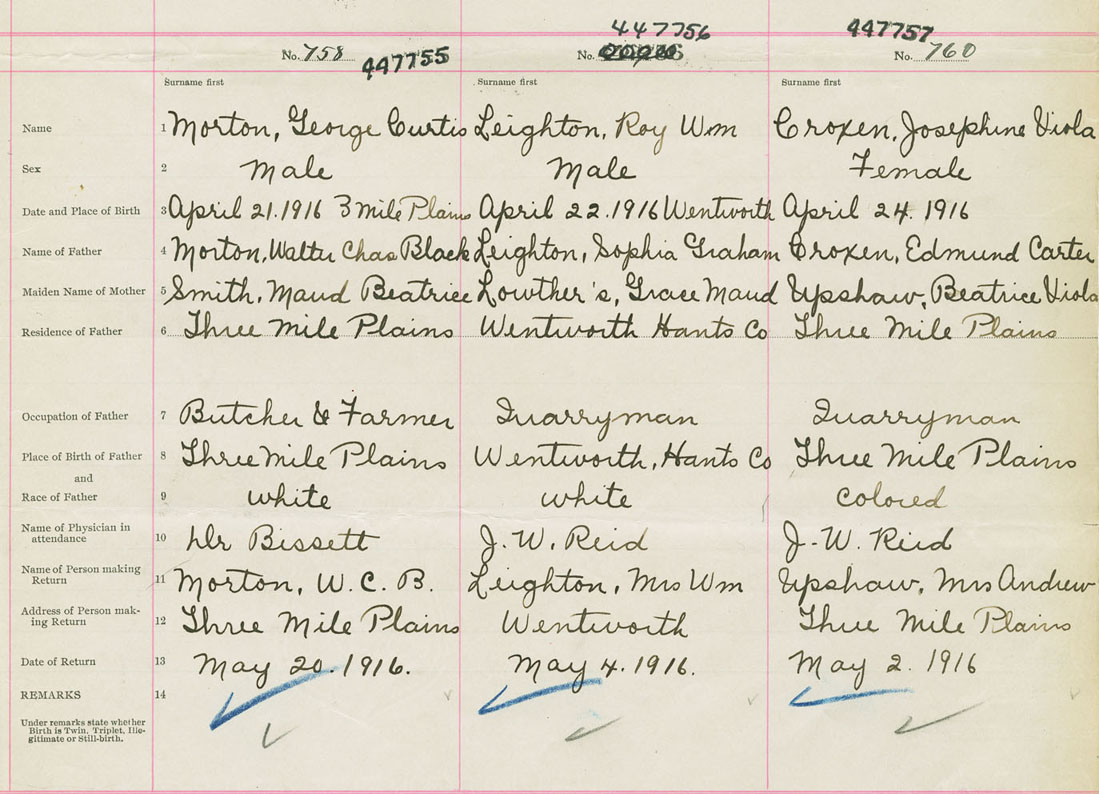 447756 447757
No. 758 447755 No. No. 760
Surname first Surname first Surname first
Name 1 Morton, George Curtis Leighton, Roy Wm Croxen, Josephine Viola
Sex 2 Male Male Female
Date and Place of Birth 3 April 21.1916 3 Mile Plains April 22.1916 Wentworth April 24. 1916
Name of Father 4 Morton, Walter Chas Black Leighton, Sophia Graham Croxen, Edmund Carter
Maiden Name of Mother 5 Smith, Maud Beatrice Lowther's, Grace Maud Upshaw, Beatrice Viola
Residence of Father 6 Three Mile Plains Wentworth Hants Co Three Mile Plains
Occupation of Father 7 Butcher & Farmer Quarryman Quarryman
Place of Birth of Father 8 Three Mile Plains Wentworth, Hants Co Three Mile Plains
and
Race of Father 9 white white colored
Name of Physician in
attendance 10 Dr Bissett J. W. Reid J. W. Reid
Name of Person making
Return 11 Morton, W. C. B. Leighton, Mrs Wm Upshaw, Mrs Andrew
Address of Person mak-
ing Return 12 Three Mile Plains Wentworth Three Mile Plains
Date of Return 13 May 20.1916. May 4.1916. May 2. 1916
REMARKS 14
Under remarks state whether
Birth is Twin, Triplet, Ille-
gitimate or Still-birth.